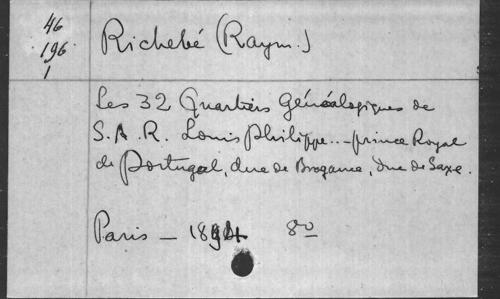 46
196
1
Richebé (Raym.)
Les 32 Quartiers Généalogiques de
S. A. R. Louis Philippe .. prince Royal
de Portugal, duc de Bragance, duc de Saxe.
Paris — 8º